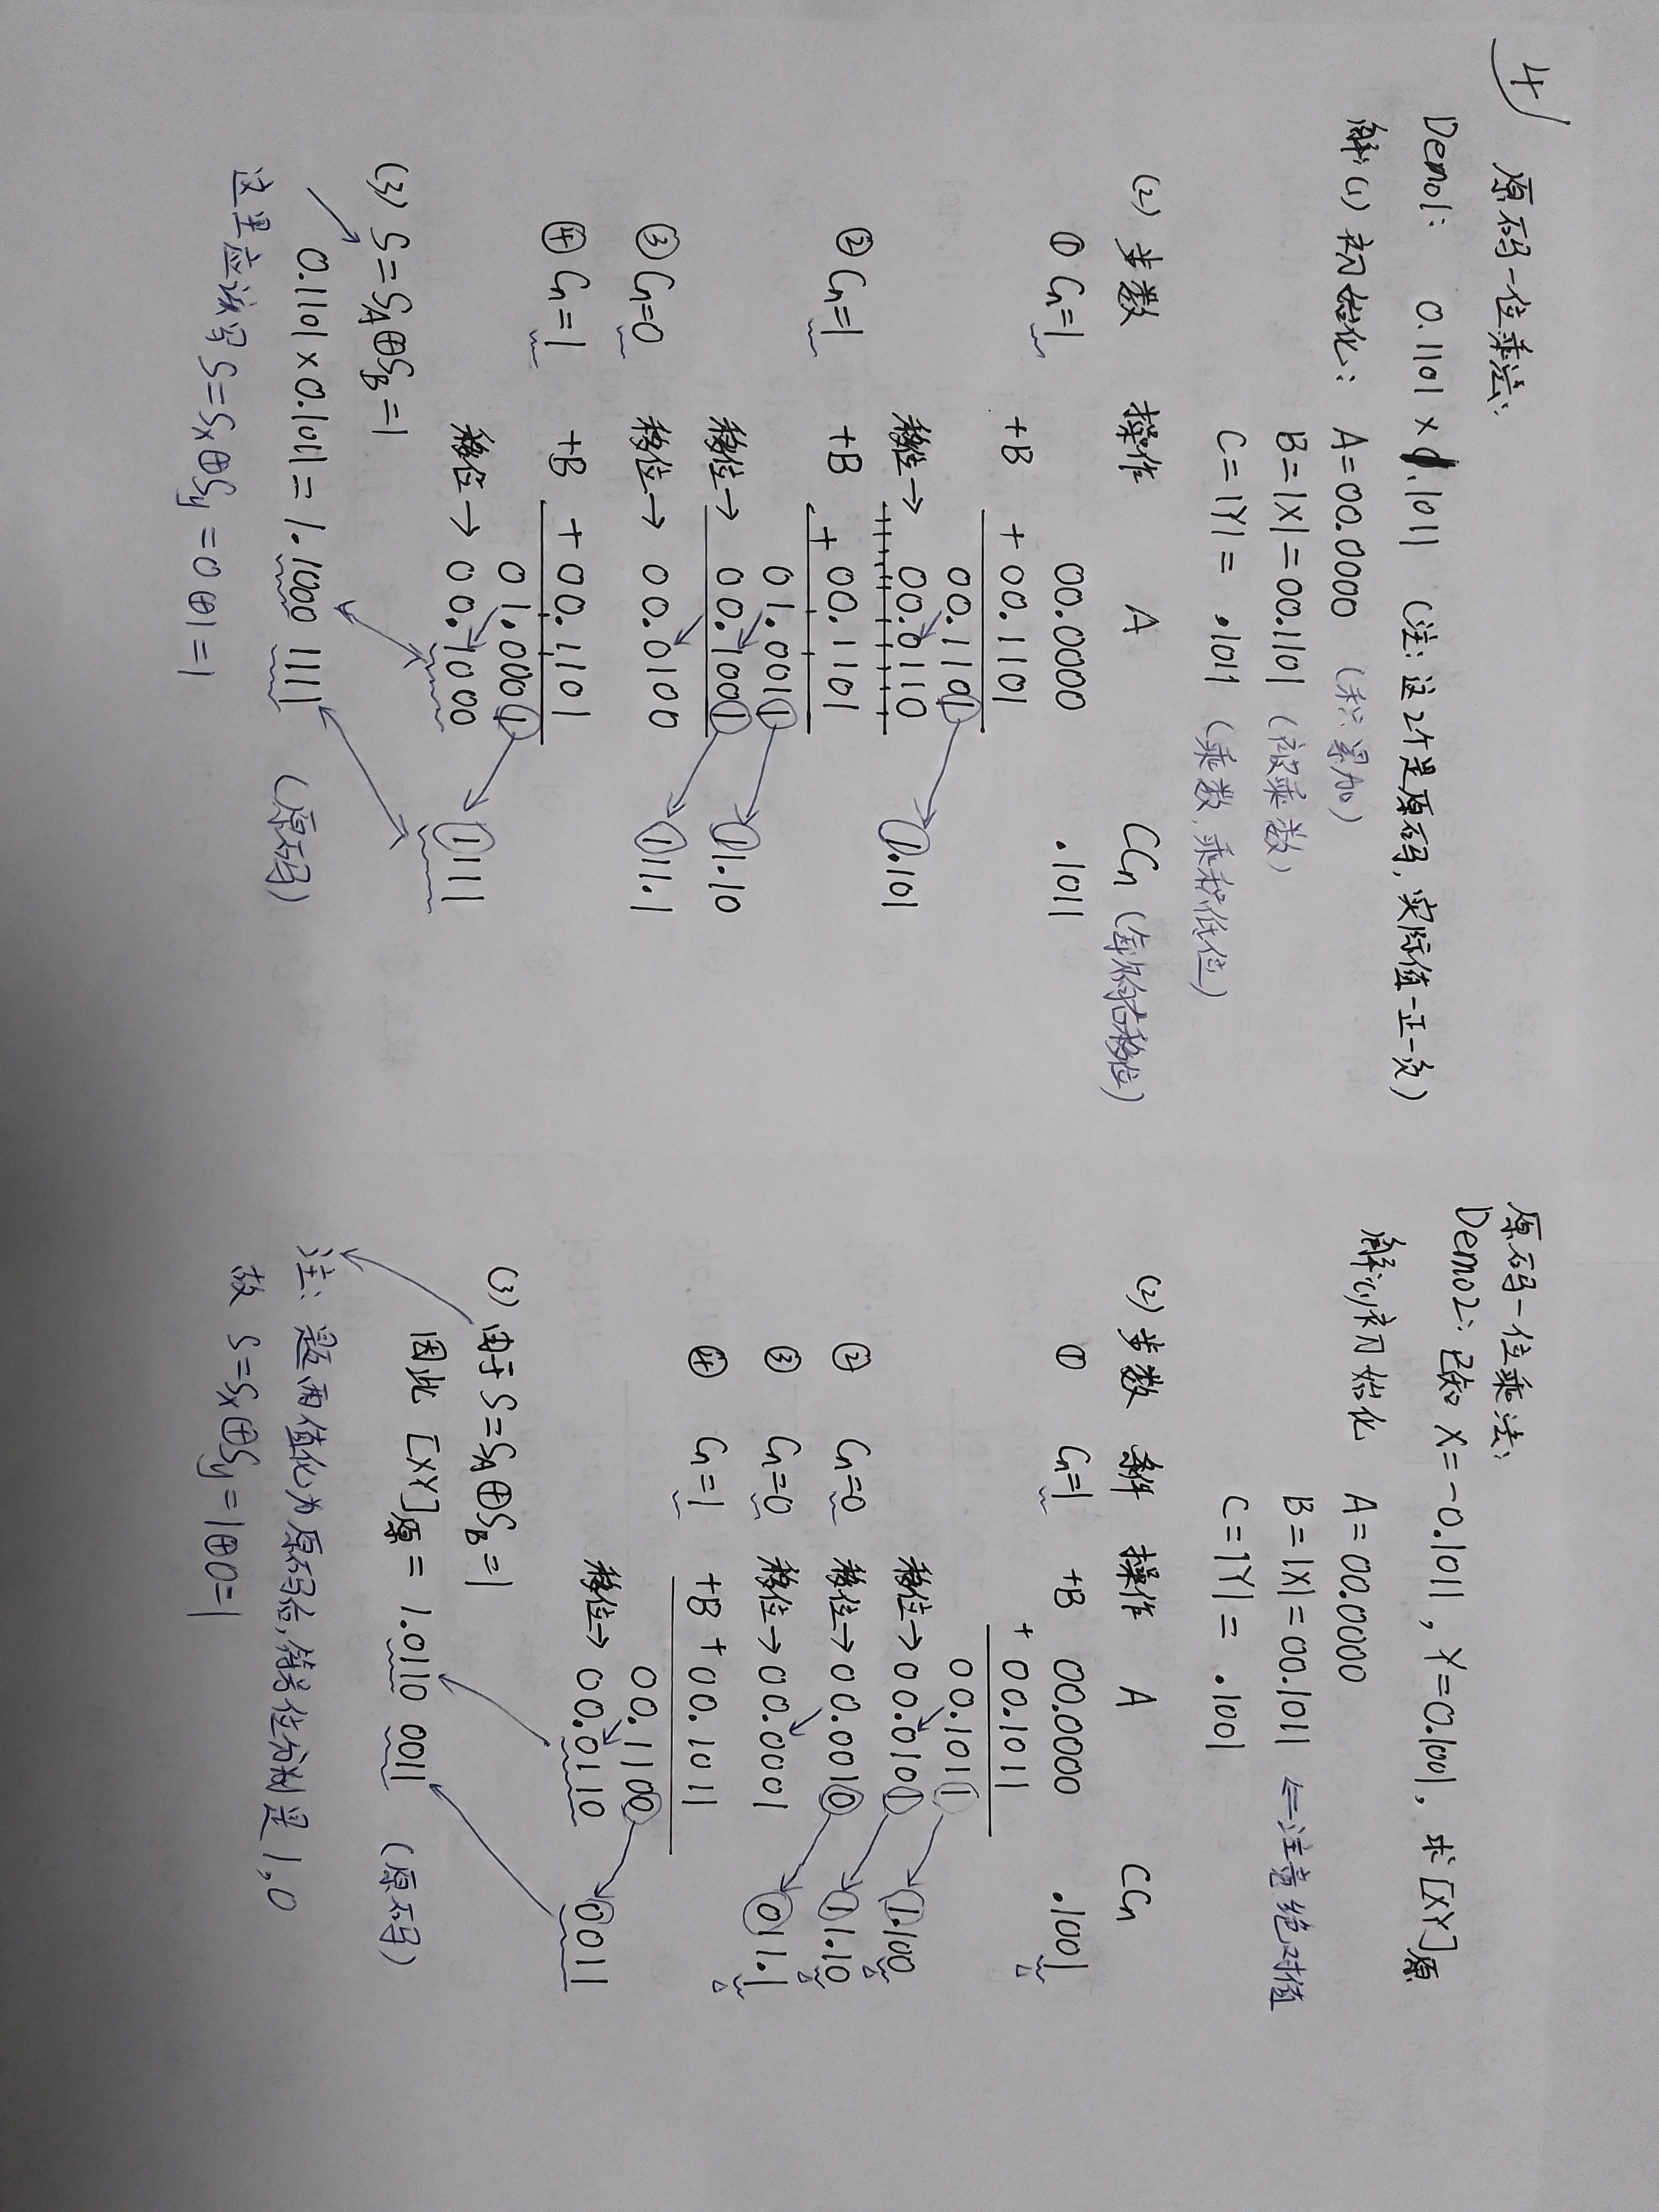 4
原码一位乘法:
Demo1: 0.1101 × 1.1011 (注: 这2个是原码, 实际值一正一负)
解: (1) 初始化: A=00.0000 (积累加)
B=|X|=00.1101 (被乘数)
C=|Y|= .1011 (乘数, 乘积低位)
(2) 步数 操作 A CCn (每次向右移位)
① Cn=1 00.0000 .1011
+B + 00.1101
00.1101
移位→ 00.0110 1.101
② Cn=1 +B + 00.1101
01.0011
移位→ 00.1001 11.10
③ Cn=0 移位→ 00.0100 111.1
④ Cn=1 +B + 00.1101
01.0001
移位→ 00.1000 1111
(3) S=SA⊕SB=1
0.1101×0.1011=1.1000 1111 (原码)
这里应该写 S=Sx⊕Sy=0⊕1=1
原码一位乘法:
Demo2: 已知 X=-0.1011, Y=0.1001, 求[XY]原
解: (1) 初始化 A=00.0000
B=|X|=00.1011 ⇐注意绝对值
C=|Y|= .1001
(2) 步数 条件 操作 A CCn
① Cn=1 +B 00.0000 .1001
+ 00.1011
00.1011
移位→ 00.0101 1.100
② Cn=0 移位→ 00.0010 11.10
③ Cn=0 移位→ 00.0001 011.1
④ Cn=1 +B + 00.1011
00.1100
移位→ 00.0110 0011
(3) 由于 S=SA⊕SB=1
因此 [XY]原= 1.0110 0011 (原码)
注: 题两值化为原码后, 符号位分别是1,0
故 S=Sx⊕Sy=1⊕0=1